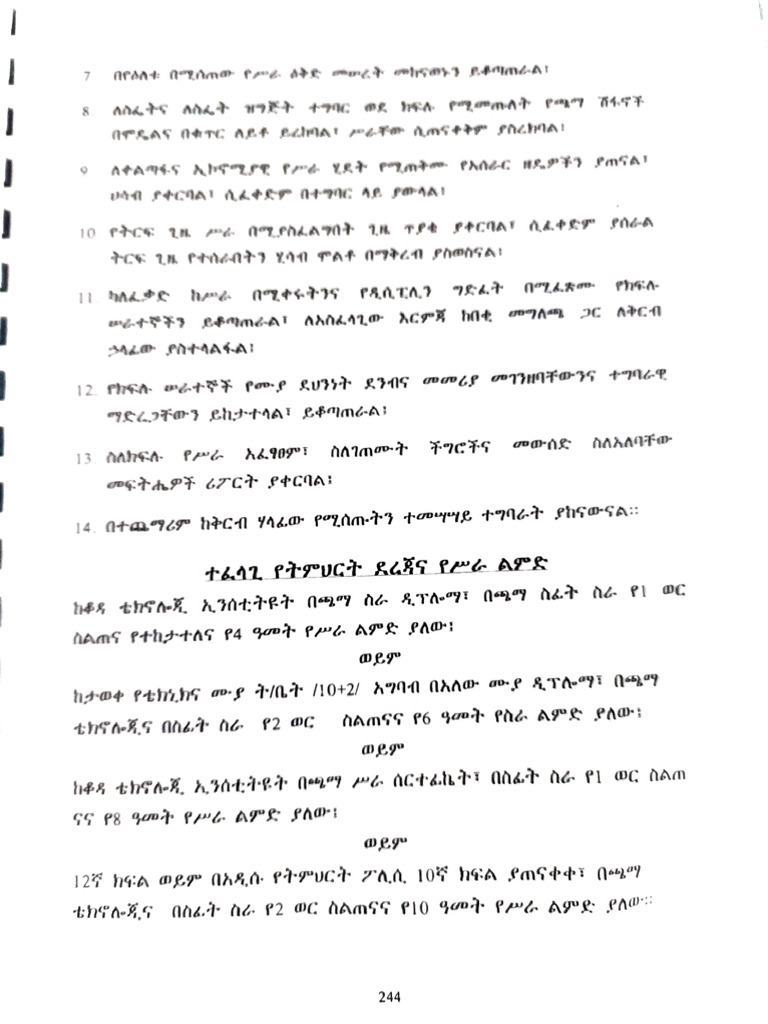 7 በየዕለቱ በሚሰጠው የሥራ ዕቅድ መሠረት መከናወኑን ይቆጣጠራል፤
8 ለስፌትና ለስፌት ዝግጅት ተግባር ወደ ክፍሉ የሚመጡለት የጫማ ሽፋኖች
በሞዴልና በቁጥር ለይቶ ይረከባል፣ ሥራቸው ሲጠናቀቅም ያስረክባል፤
9 ለቀልጣፋና ኢኮኖሚያዊ የሥራ ሂደት የሚጠቅሙ የአሰራር ዘዴዎችን ያጠናል፣
ሀሳብ ያቀርባል፣ ሲፈቀድም በተግባር ላይ ያውላል፤
10 የትርፍ ጊዜ ሥራ በሚያስፈልግበት ጊዜ ጥያቄ ያቀርባል፣ ሲፈቀድም ያሰራል
ትርፍ ጊዜ የተሰራበትን ሂሳብ ሞልቶ በማቅረብ ያስወስናል፤
11 ካለፈቃድ ከሥራ በሚቀሩትንና የዲሲፒሊን ግድፈት በሚፈጽሙ የክፍሉ
ሠራተኞችን ይቆጣጠራል፣ ለአስፈላጊው እርምጃ ከበቂ መግለጫ ጋር ለቅርብ
ኃላፊው ያስተላልፋል፤
12. የክፍሉ ሠራተኞች የሙያ ደህንነት ደንብና መመሪያ መገንዘባቸውንና ተግባራዊ
ማድረጋቸውን ይከታተላል፣ ይቆጣጠራል፤
13 ስለክፍሉ የሥራ አፈፃፀም፣ ስለገጠሙት ችግሮችና መውሰድ ስለአለባቸው
መፍትሔዎች ሪፖርት ያቀርባል፤
14. በተጨማሪም ከቅርብ ሃላፊው የሚሰጡትን ተመሣሣይ ተግባራት ያከናውናል።
ተፈላጊ የትምህርት ደረጃና የሥራ ልምድ
ከቆዳ ቴክኖሎጂ ኢንሰቲትዩት በጫማ ስራ ዲፕሎማ፣ በጫማ ስፊት ስራ የ1 ወር
ስልጠና የተከታተለና የ4 ዓመት የሥራ ልምድ ያለው፤
ወይም
ከታወቀ የቴክኒክና ሙያ ት/ቤት /10+2/ አግባብ በአለው ሙያ ዲፕሎማ፣ በጫማ
ቴክኖሎጂና በስፊት ስራ የ2 ወር ስልጠናና የ6 ዓመት የስራ ልምድ ያለው፤
ወይም
ከቆዳ ቴክኖሎጂ ኢንሰቲትዩት በጫማ ሥራ ሰርተፊኬት፣ በስፊት ስራ የ1 ወር ስልጠ
ናና የ8 ዓመት የሥራ ልምድ ያለው፤
ወይም
12ኛ ክፍል ወይም በአዲሱ የትምህርት ፖሊሲ 10ኛ ክፍል ያጠናቀቀ፣ በጫማ
ቴክኖሎጂና በስፊት ስራ የ2 ወር ስልጠናና የ10 ዓመት የሥራ ልምድ ያለው።
244